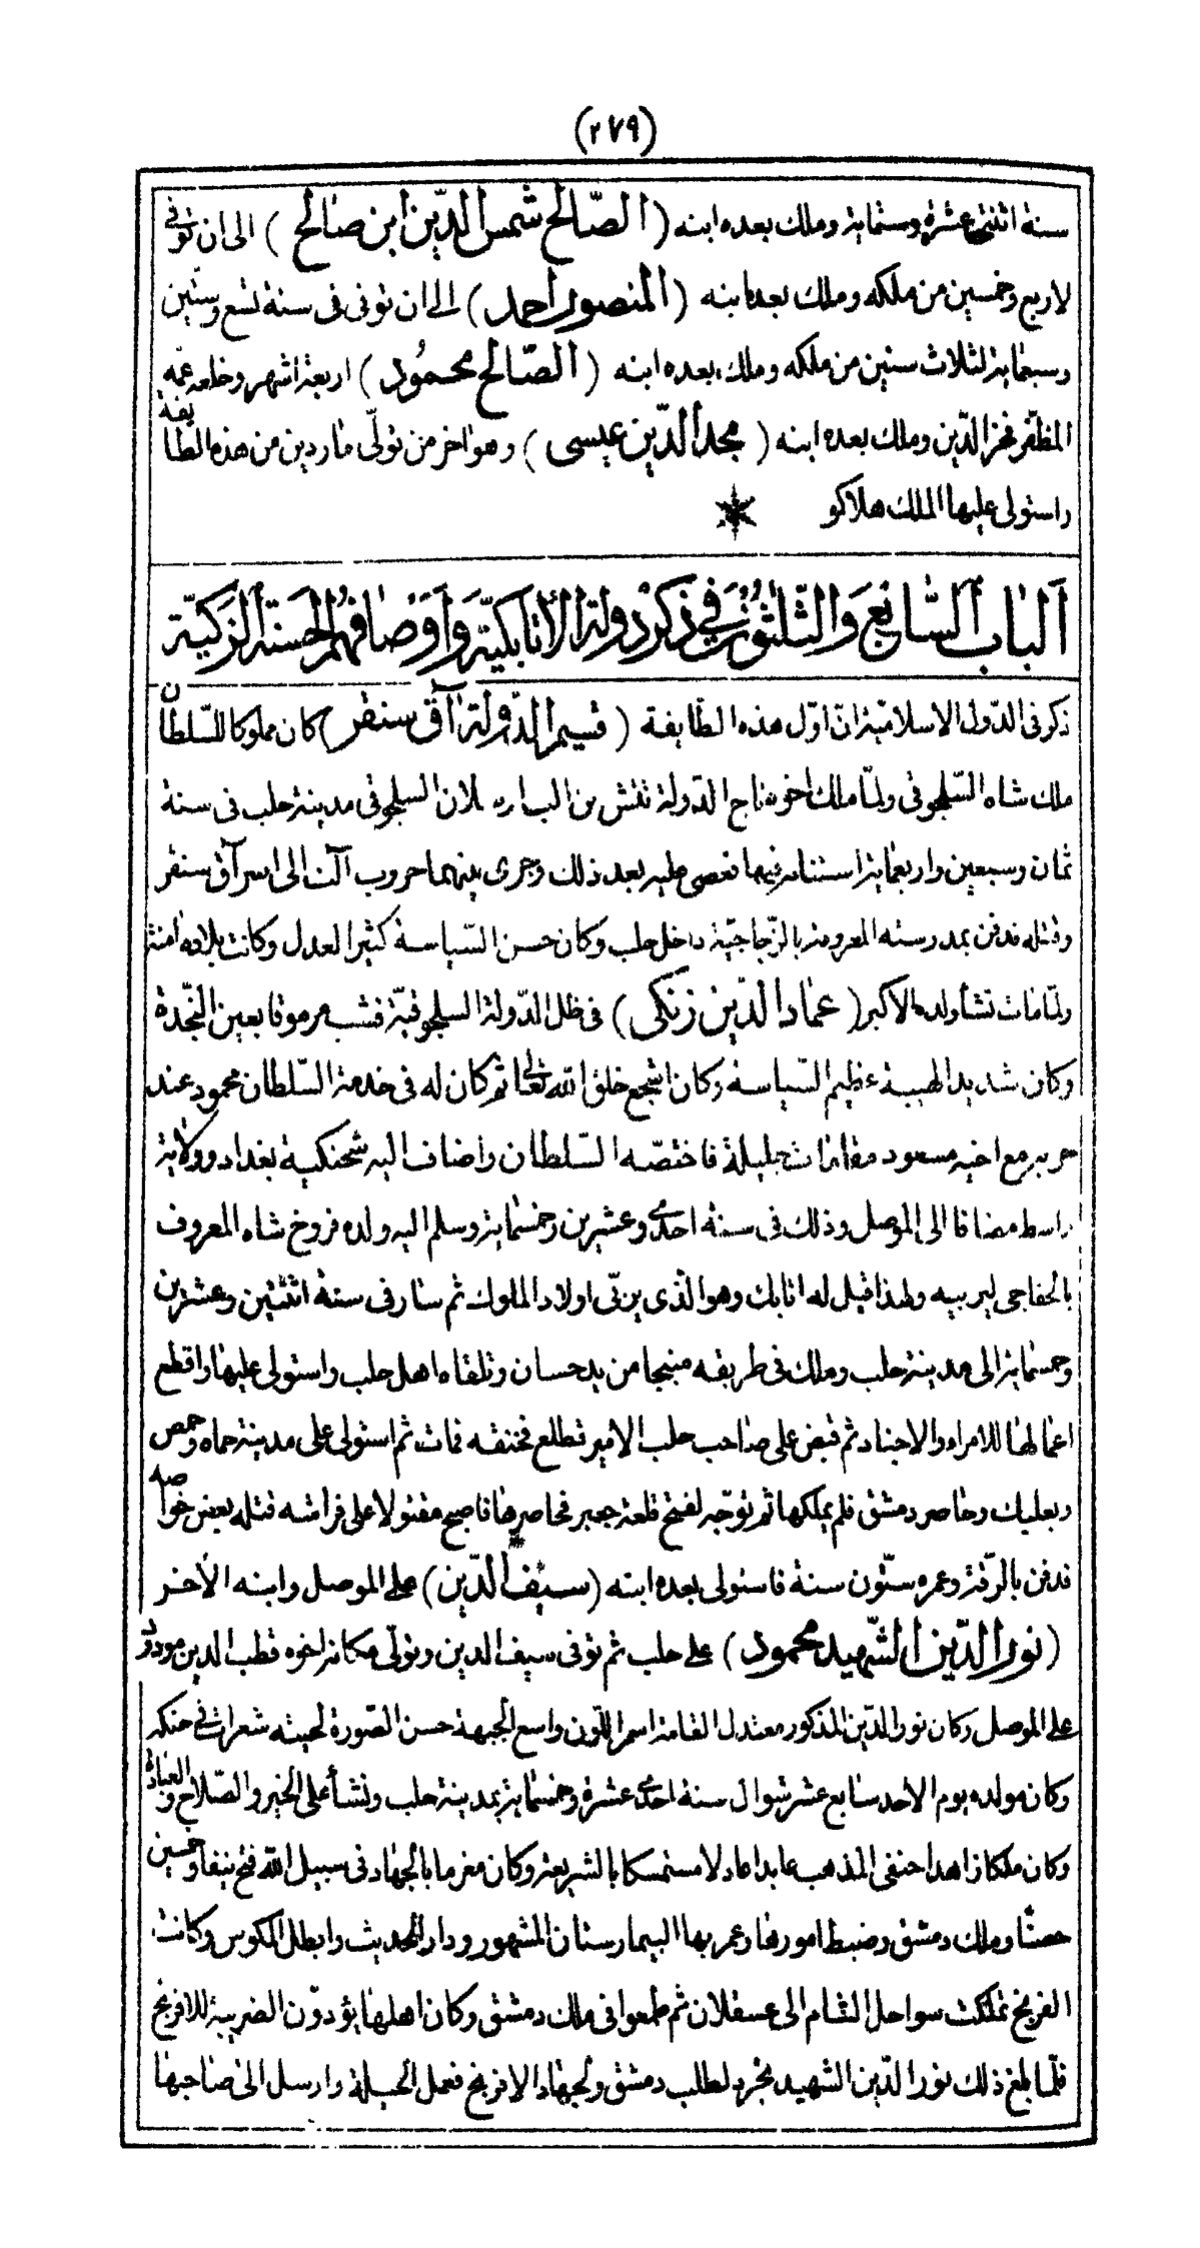 (٢٧٩)
سنة اثنتى عشرة وستماية وملك بعده ابنه (الصّالح شمس الدّين ابن صالح) الى ان توفى
لاربع وخمسين من ملكه وملك بعده ابنه (المنصور احمد) الى ان توفى فى سنة تسع وستّين
وسبعماية لثلاث سنين من ملكه وملك بعده ابنه (الصّالح محمُود) اربعة اشهر وخلعه عمّه
المظفّر فخر الدّين وملك بعده ابنه (مجد الدّين عيسى) وهو اخر من تولّى ماردين من هذه الطّايفة
واستولى عليها الملك هلاكو
الباب السّابع والثّلثون في ذكر دولة الأتابكيّة وأوصافهم الحسنة الزكيّة
ذكر فى الدّول الاسلاميّة انّ اوّل هذه الطّايفة (قسيم الدّولة آق سنقر) كان مملوكا للسّلطان
ملك شاه السّلجوقى ولمّا ملك اخوه تاج الدّولة تتش بن الب ارسلان السلجوقى مدينة حلب فى سنة
ثمان وسبعين واربعماية استنابه فيها فعصى عليه بعد ذلك وجرى بينهما حروب آلت الى اسر آق سنقر
وقتله فدفن بمدرسته المعروفة بالزّجاجيّة داخل حلب وكان حسن السّياسة كثير العدل وكانت بلاده امنة
ولمّا مات نشأ ولده الاكبر (عماد الدّين زنكى) فى ظل الدّولة السلجوقيّة فشب مرموقا بعين النّجدة
وكان شديد الهيبة عظيم السّياسة وكان اشجع خلق الله تعالى ثم كان له فى خدمة السّلطان محمود عند
حربه مع اخيه مسعود مقامات جليلة فاختصّه السّلطان واضاف اليه شحنكية بغداد وولاية
واسط مضافا الى الموصل وذلك فى سنة احدى وعشرين وخمسماية وسلم اليه ولده فروخ شاه المعروف
بالخفاجى ليربيه ولهذا قيل له اتابك وهو الّذى يربّى اولاد الملوك ثم سار فى سنة اثنتين وعشرين
وخمسماية الى مدينة حلب وملك فى طريقه منبجا من يد حسان وتلقاه اهل حلب واستولى عليها واقطع
اعمالها للامراء والاجناد ثم قبض على صاحب حلب الامير قطلع فخنقه فمات ثم استولى على مدينة حماه وحمص
وبعلبك وحاصر دمشق فلم يملكها ثم توجّه لفتح قلعة جعبر فحاصرها فاصبح مقتولا على فراشه قتله بعض خواصه
فدفن بالرّقة وعمره ستّون سنة فاستولى بعده ابنه (سيف الدّين) على الموصل وابنه الأخر
(نور الدّين الشّهيد محمود) على حلب ثم توفى سيف الدين وتولّى مكانه اخوه قطب الدين مودود
على الموصل وكان نور الدّين المذكور معتدل القامة اسمر اللّون واسع الجبهة حسن الصّورة لحيته شعرات في حنكه
وكان مولده يوم الاحد سابع عشر شوال سنة احدى عشرة وخمسماية بمدينة حلب ونشأ على الخير والصّلاح والعبادة
وكان ملكا زاهدا حنفى المذهب عابدا عادلا مستمسكا بالشريعة وكان مغرما بالجهاد فى سبيل الله فتح نيفا وخمسين
حصنًا وملك دمشق وضبط امورها وعمر بها البيمارستان المشهور ودار الحديث وابطل المكوس وكانت
الفرنج تملكت سواحل الشام الى عسقلان ثم طمعوا فى ملك دمشق وكان اهلها يؤدّون الضريبة للافرنج
فلمّا بلغ ذلك نور الدّين الشهيد تجرد لطلب دمشق ولجهاد الافرنج فعمل الحيلة وارسل الى صاحبها